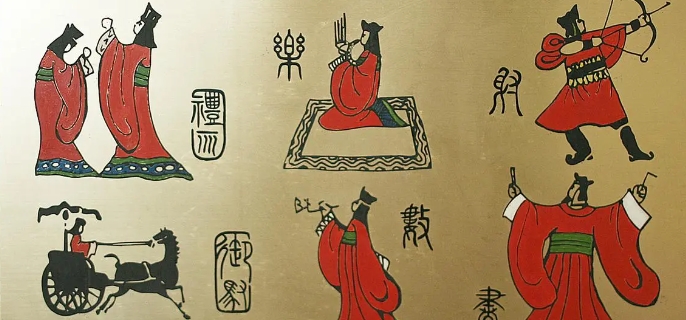 禮
樂
射
御
數
書